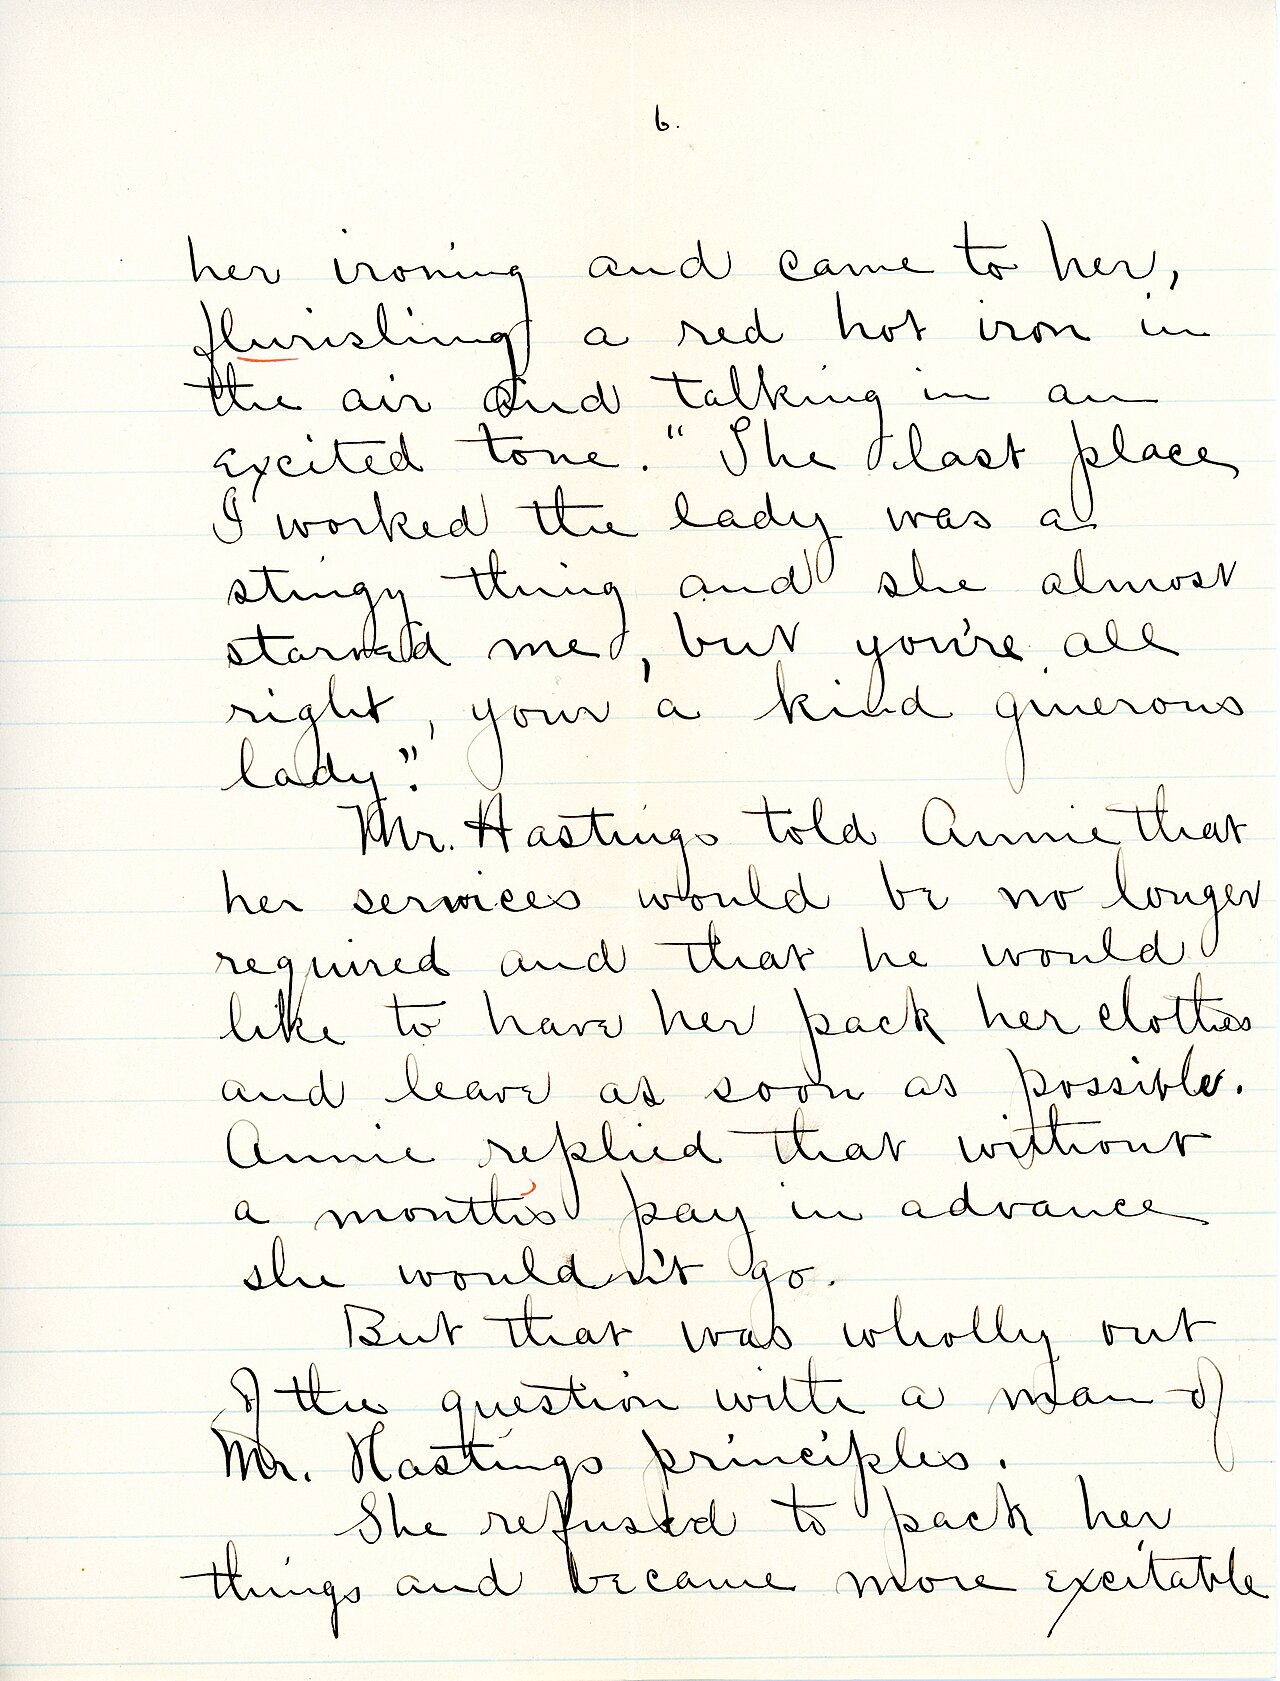 6.
her ironing and came to her,
flurishing a red hot iron in
the air and talking in an
excited tone. "The last place
I worked the lady was a
stingy thing and she almost
starved me, but you're all
right, your a kind generous
lady."
Mr. Hastings told Annie that
her services would be no longer
required and that he would
like to have her pack her clothes
and leave as soon as possible.
Annie replied that without
a month's pay in advance
she wouldn't go.
But that was wholly out
of the question with a man of
Mr. Hastings principles.
She refused to pack her
things and became more excitable